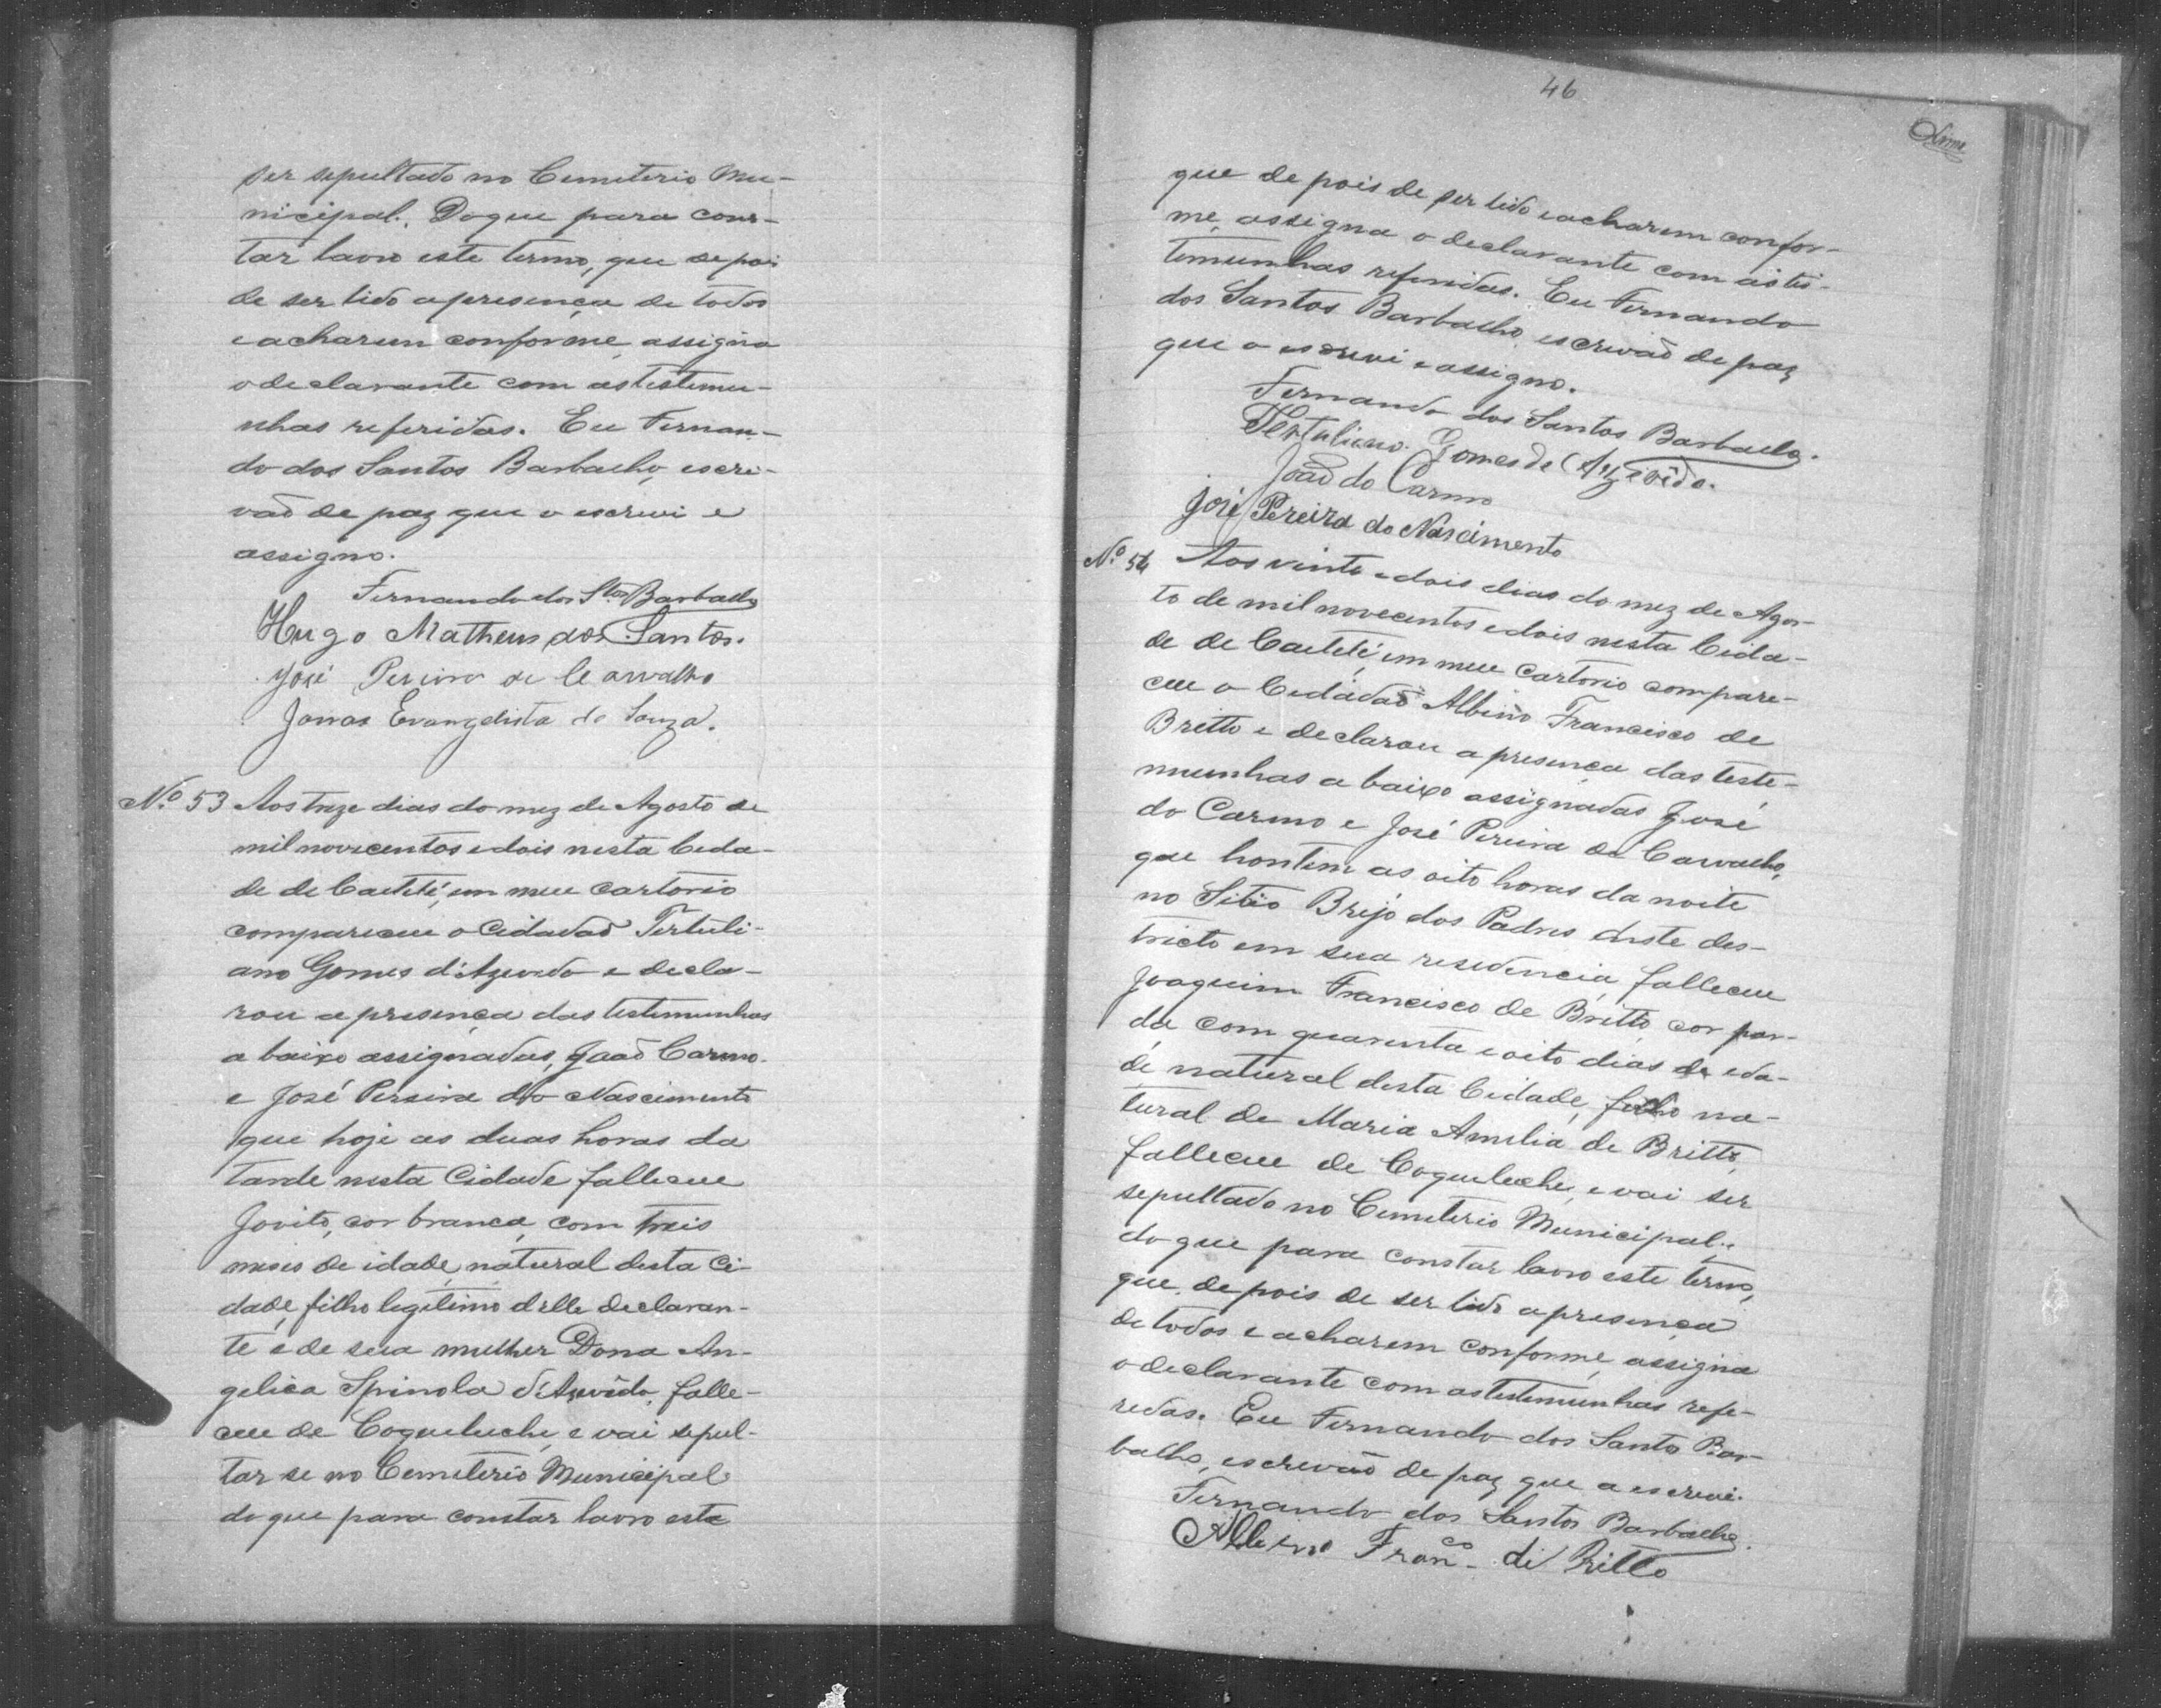 ser sepultado no Cemeterio Mu-
nicipal. Do que para cons-
tar lavro este termo, que depois
de ser lido a presença de todos
e acharem conforme, assigna
o declarante com as testemu-
nhas referidas. Eu Fernan-
do dos Santos Barbalho, escri-
vaõ de paz que o escrevi e
assigno.
Fernando dos Stos Barbalho
Hugo Matheus dos Santos.
José Pereira de Carvalho
Jonas Evangelista de Souza.
No. 53 Aos treze dias do mez de Agosto de
mil novecentos e dois nesta Cida-
de de Caetité, em meu cartorio
compareceu o Cidadaõ Tertuli-
ano Gomes d'Azevedo e decla-
rou a presença das testemunhas
a baixo assignadas, Joaõ Carmo
e José Pereira do Nascimento
que hoje as duas horas da
tarde nesta Cidade falleceu
Jovito, cor branca, com treis
meses de idade, natural desta Ci-
dade, filho legitimo delle declaran-
te e de sua mulher Dona An-
gelica Spinola d'Azevêdo, falle-
ceu de Coqueluche, e vai sepul-
tar se no Cemeterio Municipal
do que para constar lavro este
46
que de pois de ser lido e acharem confor-
me, assigna o declarante com as tes-
temunhas referidas. Eu Fernando
dos Santos Barbalho, escrivaõ de paz
que o escrevi e assigno.
Fernando dos Santos Barbalho.
Tertuliano Gomes de Azevêdo.
Joaõ do Carmo
José Pereira do Nascimento
No. 54 Aos vinte e dois dias do mez de Agos-
to de mil novecentos e dois nesta Cida-
de de Caetité, em meu cartorio compare-
ceu o Cidadaõ Albino Francisco de
Britto e declarou a presença das teste-
munhas a baixo assignadas José
do Carmo e José Pereira de Carvalho,
que hontem as oito horas da noite
no Sitio Brejo dos Padres deste des-
tricto em sua residencia, falleceu
Joaquim Francisco de Britto, cor par-
da, com quarenta e oito dias de eda-
de natural desta Cidade, filho na-
tural de Maria Amelia de Britto,
falleceu de Coqueluche, e vai ser
sepultado no Cemeterio Municipal.
do que para constar lavro este termo,
que, depois de ser lido a presença
de todos e acharem conforme, assigna
o declarante com as testemunhas refe-
redas. Eu Fernando dos Santos Bar-
balho, escrevaõ de paz que a escrevi.
Fernando dos Santos Barbalho.
Albino Franco. di Britto